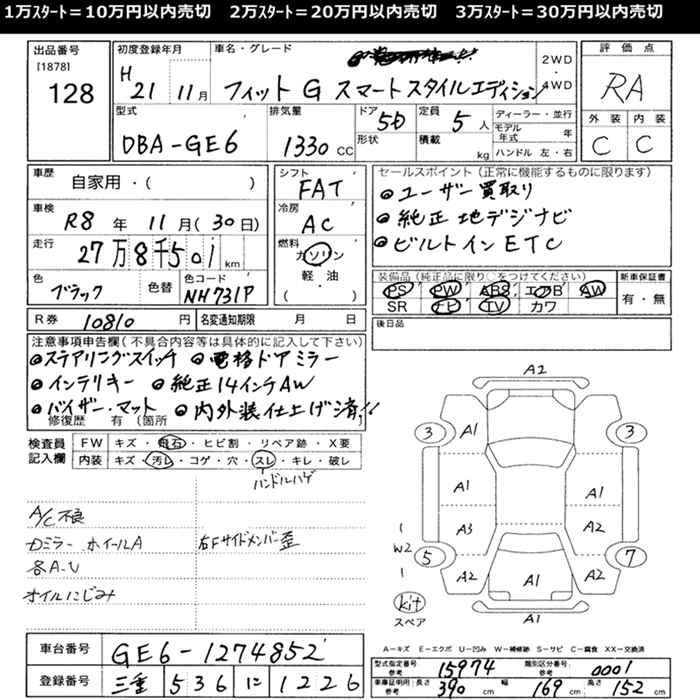 1万ｽﾀｰﾄ＝10万円以内売切　2万ｽﾀｰﾄ＝20万円以内売切　3万ｽﾀｰﾄ＝30万円以内売切
出品番号
[1878]
128
初度登録年月
H 21 11月
車名・グレード
フィット G スマートスタイルエディション
2WD
・
4WD
評価点
RA
外装 内装
C C
型式
DBA-GE6
排気量
1330 CC
ドア 5D
形状
定員 5 人
積載 kg
ディーラー・並行
モデル年式 年
ハンドル 左・右
車歴
自家用・( )
車検
R8 年 11 月 ( 30 日)
走行
27万8千501 km
色
ブラック
色替
色コード
NH731P
シフト
FAT
冷房
AC
燃料
ガソリン
軽・油
( )
セールスポイント (正常に機能するものに限ります)
◎ユーザー買取り
◎純正 地デジナビ
◎ビルトインETC
装備品 (純正品に限り○をつけてください)
PS PW ABS エアB AW
SR ナビ TV カワ
新車保証書
有・無
R券 10810 円
名変通知期限 月 日
後日品
注意事項申告欄(不具合内容等は具体的に記入して下さい)
◎ステアリングスイッチ ◎電格ドアミラー
◎インテリキー ◎純正14インチAW
◎バイザー・マット ◎内外装仕上げ済!!
修復歴 有 (箇所
検査員
記入欄
FW キズ・飛石・ヒビ割・リペア跡・X要
内装 キズ・汚レ・コゲ・穴・スレ・キレ・破レ
ハンドルハゲ
A/C不良
Dミラー ホイールA
右Fサイドメンバー歪
各A.U
オイルにじみ
A2
3 A1 3
A1 A1
1 A3 A2
W2
1
5 7
A2 A1 A2
kit
スペア
A1
A－キズ E－エクボ U－凹み W－補修跡 S－サビ C－腐食 XX－交換済
車台番号 GE6-1274852
登録番号 三重 536 に 1226
型式指定番号
参考
15974
類別区分番号
参考
0001
車庫証明用・長さ
参考
390 cm
幅 169 cm
高さ 152 cm